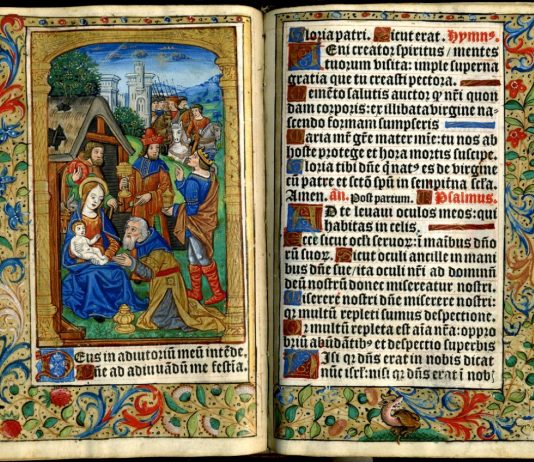 Deus in adiutoriũ meũ intẽde.
Dñe ad adiuuãdũ me festīa.
Gloria patri. Sicut erat. Hymnꝰ.
Ueni creator spiritus / mentes
tuorum visita: imple superna
gratia que tu creasti pectora.
Memẽto salutis auctor qꝫ nr̃i quon
dam corporis: ex illibata virgine na-
scendo formam sumpseris
Maria mr̃ gr̃e mater mĩe: tu nos ab
hoste protege et hora mortis suscipe.
Gloria tibi dñe q̃ natꝰ es de virgine
cũ patre et sctõ spũ in sempitña secĩa.
Amen. añ. Post partum. Psalmus.
Ad te leuaui oculos meos: qui
habitas in celis.
Ecce sicut ocĩi seruorꝫ: ĩ maĩbus dño
rũ suorꝫ. Sicut oculi ancille in mani
bus dñe sue / ita oculi nr̃i ad dominũ
deũ nostrũ donec misereatur nostri.
Miserere nostri dñe miserere nostri:
qꝛ multũ repleti sumus despectione.
Qꝛ multũ repleta est aĩa nr̃a: oppro
briũ abũdãtibꝰ et despectio superbis
Nisi qꝛ dñs erat in nobis dicat
nũc isrl̃: nisi qꝛ dñs erat ĩ nobꝫ